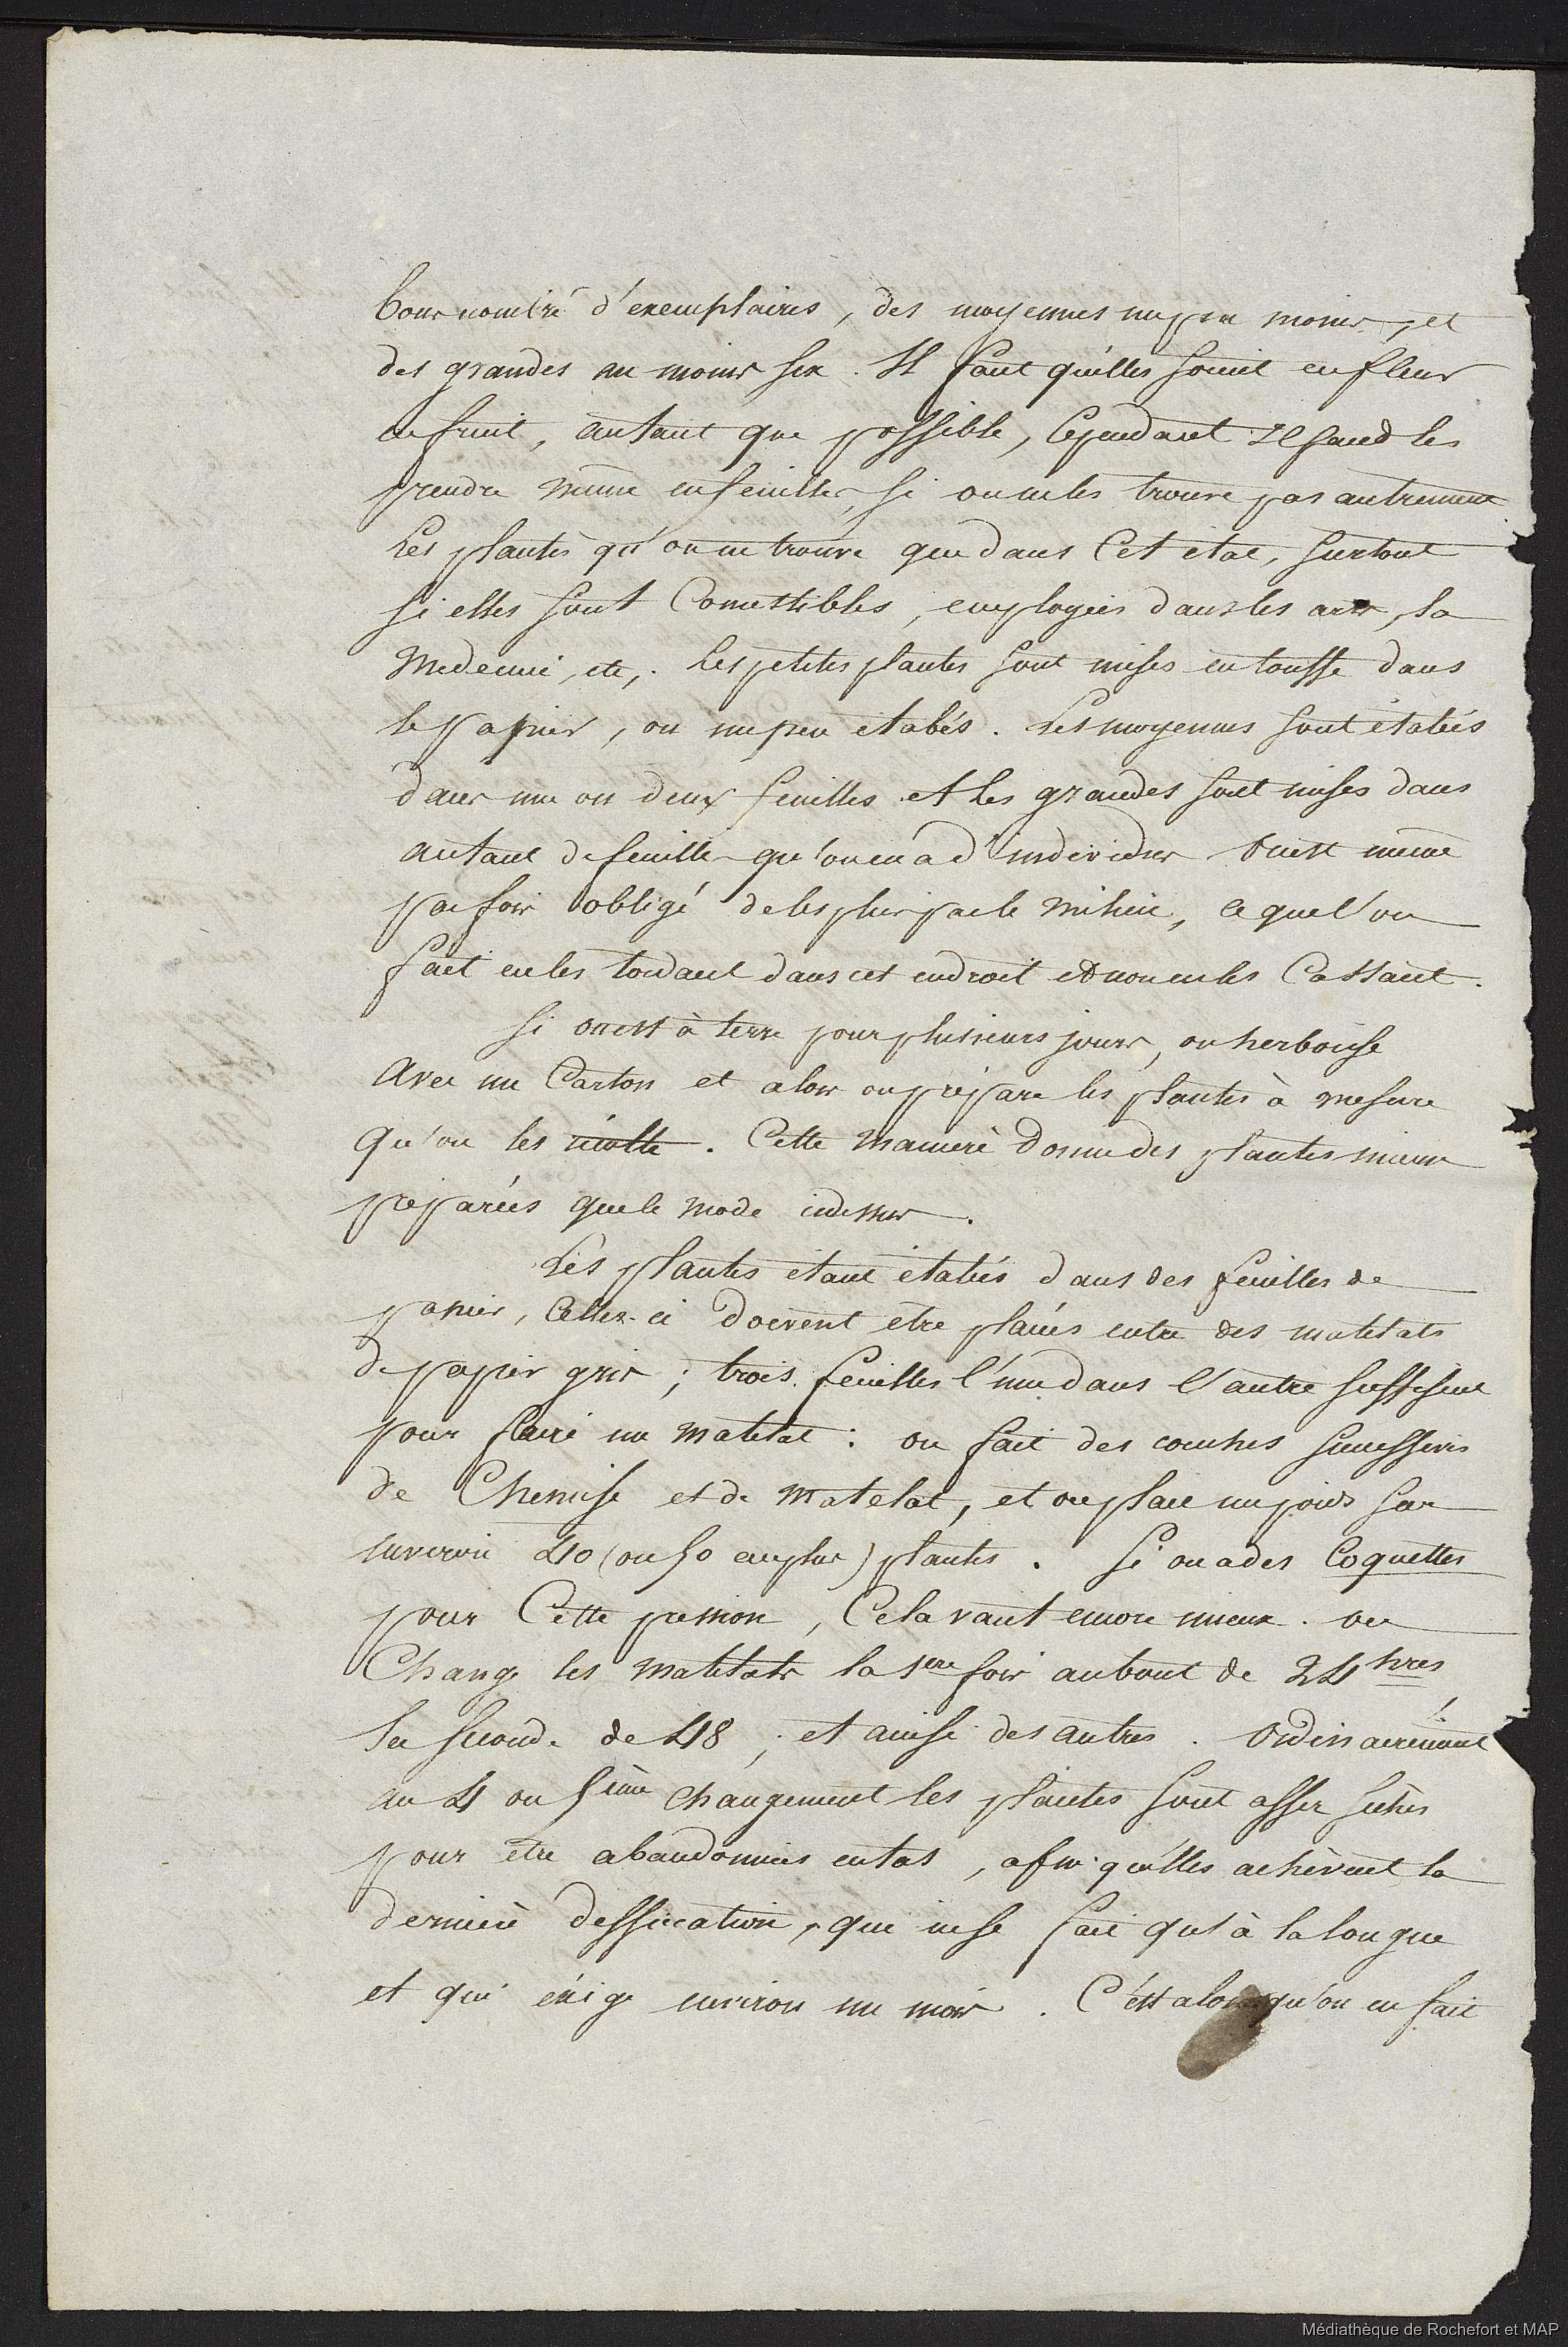 bon nombre d'exemplaires, des moyennes un peu moins, et
des grandes au moins six. Il faut qu'elles soient en fleur
en fruit, autant que possible, Cependant Il faud les
prendre même en feuilles, si on ne les trouve pas autrement
Les plantes qu'on ne trouve que dans Cet état, surtout
si elles sont Comestibles, employées dans les arts, la
Medecine, etc,. Les petites plantes sont mises en touffe dans
le papier, ou un peu étalés. Les moyennes sont étalées
dans une ou deux feuilles et les grandes sont mises dans
autant de feuilles qu'on en a d'individus on est même
parfois obligé de les plier par le milieu, ce que l'on
fait en les tordant dans cet endroit et non en les Cassant.
Si on est à terre pour plusieurs jours, on herborise
Avec un Carton et alors on prépare les plantes à mesure
qu'on les récolte. Cette maniere donne des plantes mieux
préparées que le mode cidessus.
Les plantes étant étalées dans des feuilles de
papier, Celles-ci doivent etre placées entre des matelats
de papier gris; trois feuilles l'une dans l'autre suffisent
pour faire un matelat: on fait des couches successives
de Chemise et de matelat, et on place un poids sur
environ 40 (ou 50 au plus) plantes. Si on a des Coquettes
pour Cette pression, Cela vaut encore mieux. on
Change les matelats la 1ere fois au bout de 24 hres
la seconde de 48, et ainsi des autres. Ordinairement
au 4 ou 5ième changement les plantes sont assez sèches
pour être abandonnées en tas, afin qu'elles achèvent la
derniere dessiccation, qui ne se fait qu'à la longue
et qui éxige environ un mois. C'est alors qu'on en fait
Médiathèque de Rochefort et MAP